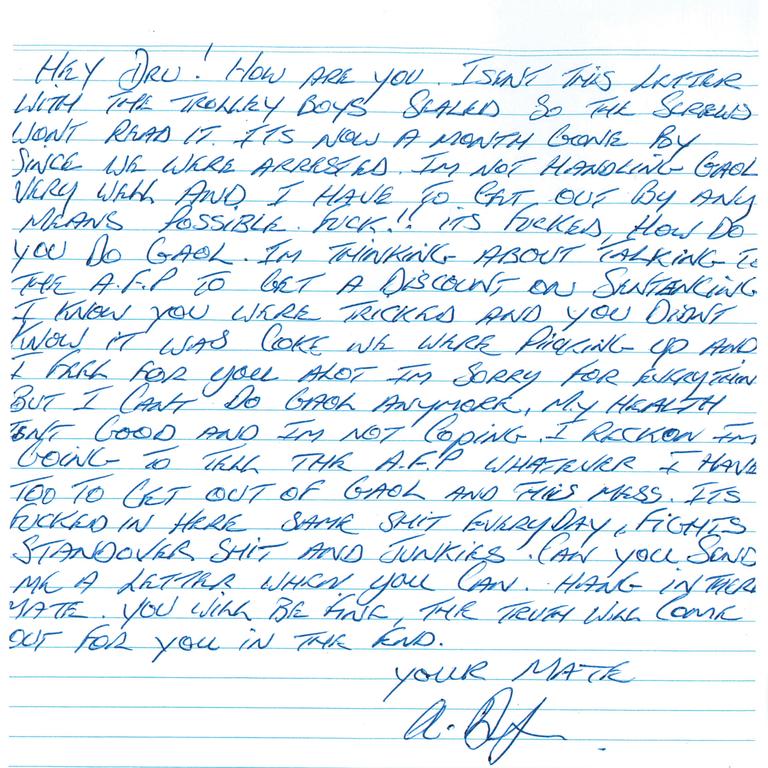 HEY DRU! HOW ARE YOU. I SENT THIS LETTER
WITH THE TROLLEY BOYS SEALED SO THE SCREWS
WONT READ IT. ITS NOW A MONTH GONE BY
SINCE WE WERE ARRESTED. IM NOT HANDLING GAOL
VERY WELL AND I HAVE TO GET OUT BY ANY
MEANS POSSIBLE. FUCK!! ITS FUCKED, HOW DO
YOU DO GAOL. IM THINKING ABOUT TALKING TO
THE A.F.P TO GET A DISCOUNT ON SENTENCING
I KNOW YOU WERE TRICKED AND YOU DIDNT
KNOW IT WAS COKE WE WERE PICKING UP AND
I FEEL FOR YOU ALOT IM SORRY FOR EVERYTHIN
BUT I CANT DO GAOL ANYMORE, MY HEALTH
ISNT GOOD AND IM NOT COPING. I RECKON IM
GOING TO TELL THE A.F.P WHATEVER I HAVE
TOO TO GET OUT OF GAOL AND THIS MESS. ITS
FUCKED IN HERE SAME SHIT EVERYDAY, FIGHTS
STANDOVER SHIT AND JUNKIES. CAN YOU SEND
ME A LETTER WHEN YOU CAN. HANG IN THERE
MATE. YOU WILL BE FINE, THE TRUTH WILL COME
OUT FOR YOU IN THE END.
YOUR MATE
A.